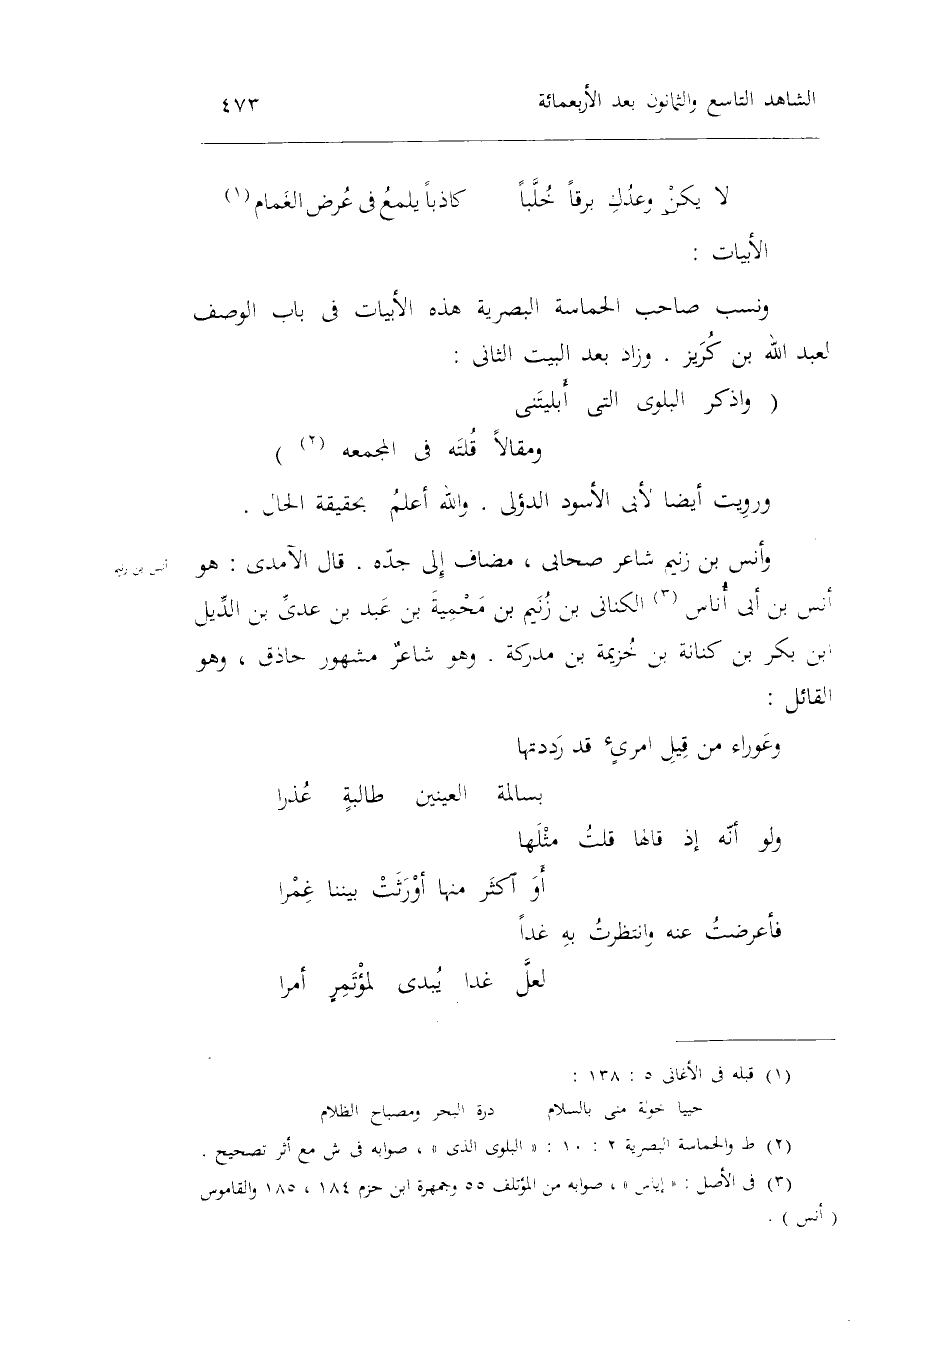 الشاهد التاسع والثمانون بعد الأربعمائة ٤٧٣
لا يكنْ وعدُكِ برقاً خُلَّباً كاذباً يلمعُ فى عُرض الغَمام (١)
الأبيات :
ونسب صاحب الحماسة البصرية هذه الأبيات فى باب الوصف
لعبد الله بن كُرَيز . وزاد بعد البيت الثانى :
( واذكر البلوى التى أَبليتَنى
ومقالاً قُلتَه فى المجمعه (٢) )
ورويت أيضا لأبى الأسود الدؤلى . والله أعلمُ بحقيقة الحال .
وأنس بن زنيم شاعر صحابى ، مضاف إلى جدّه . قال الآمدى : هو
أنس بن زنيم
أنس بن أبى أُناس (٣) الكنانى بن زُنَيم بن مَحْمِيةَ بن عَبد بن عدىِّ بن الدِّيل
ابن بكر بن كنانة بن خُزيمة بن مدركة . وهو شاعرٌ مشهور حاذق ، وهو
القائل :
وعَوراء من قِيلِ امرىءٍ قد رَددتها
بسالمة العينين طالبةٍ عُذرا
ولو أنّه إذ قالها قلتُ مثْلَها
أَوَ اكثَر منها أوْرَثَتْ بيننا غِمْرا
فأعرضتُ عنه وانتظرتُ بهِ غداً
لعلَّ غدا يُبدى لمؤْتَمِرٍ أمرا
(١) قبله فى الأغانى ٥ : ١٣٨ :
حييا خولة منى بالسلام درة البحر ومصباح الظلام
(٢) ط والحماسة البصرية ٢ : ١٠ : « البلوى الذى » ، صوابه فى ش مع أثر تصحيح .
(٣) فى الأصل : « إياس » ، صوابه من المؤتلف ٥٥ وجمهرة ابن حزم ١٨٤ ، ١٨٥ والقاموس
( أنس ) .